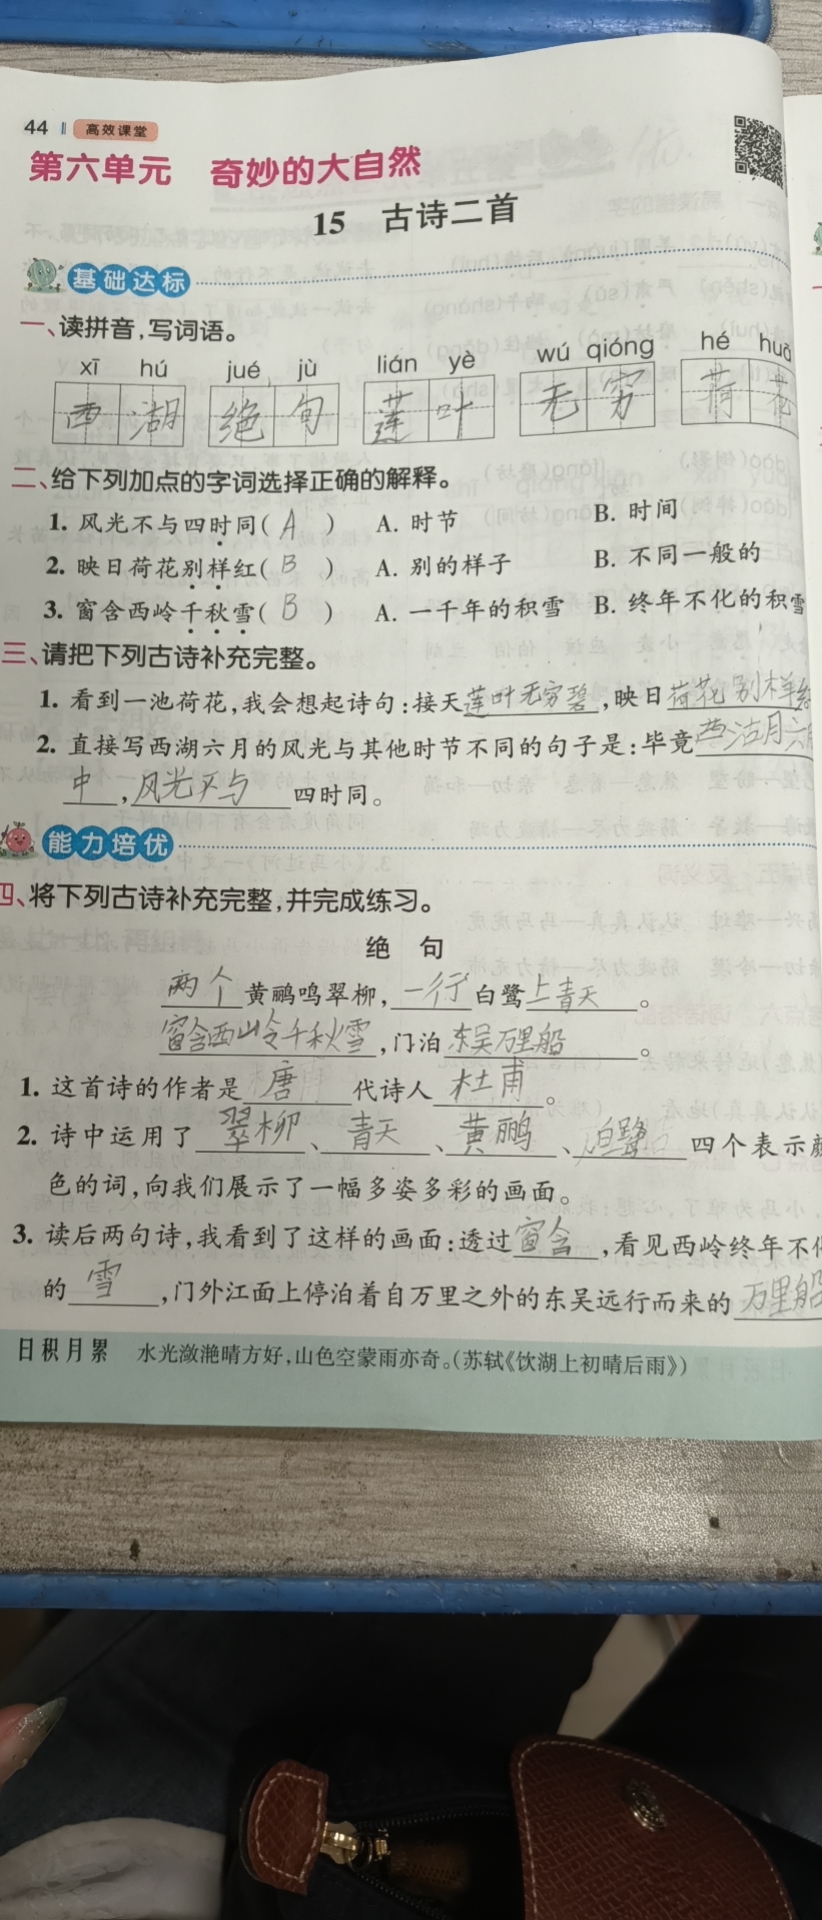 44 高效课堂
第六单元 奇妙的大自然
15 古诗二首
基础达标
一、读拼音,写词语。
xī hú jué jù lián yè wú qióng hé huā
西湖 绝句 莲叶 无穷 荷花
二、给下列加点的字词选择正确的解释。
1. 风光不与四时同( A ) A. 时节 B. 时间
2. 映日荷花别样红( B ) A. 别的样子 B. 不同一般的
3. 窗含西岭千秋雪( B ) A. 一千年的积雪 B. 终年不化的积雪
三、请把下列古诗补充完整。
1. 看到一池荷花,我会想起诗句:接天莲叶无穷碧,映日荷花别样红
2. 直接写西湖六月的风光与其他时节不同的句子是:毕竟西湖六月
中,风光不与四时同。
能力培优
四、将下列古诗补充完整,并完成练习。
绝句
两个黄鹂鸣翠柳,一行白鹭上青天。
窗含西岭千秋雪,门泊东吴万里船。
1. 这首诗的作者是唐代诗人杜甫。
2. 诗中运用了翠柳、青天、黄鹂、白鹭四个表示颜
色的词,向我们展示了一幅多姿多彩的画面。
3. 读后两句诗,我看到了这样的画面:透过窗含,看见西岭终年不化
的雪,门外江面上停泊着自万里之外的东吴远行而来的万里船
日积月累 水光潋滟晴方好,山色空蒙雨亦奇。(苏轼《饮湖上初晴后雨》)